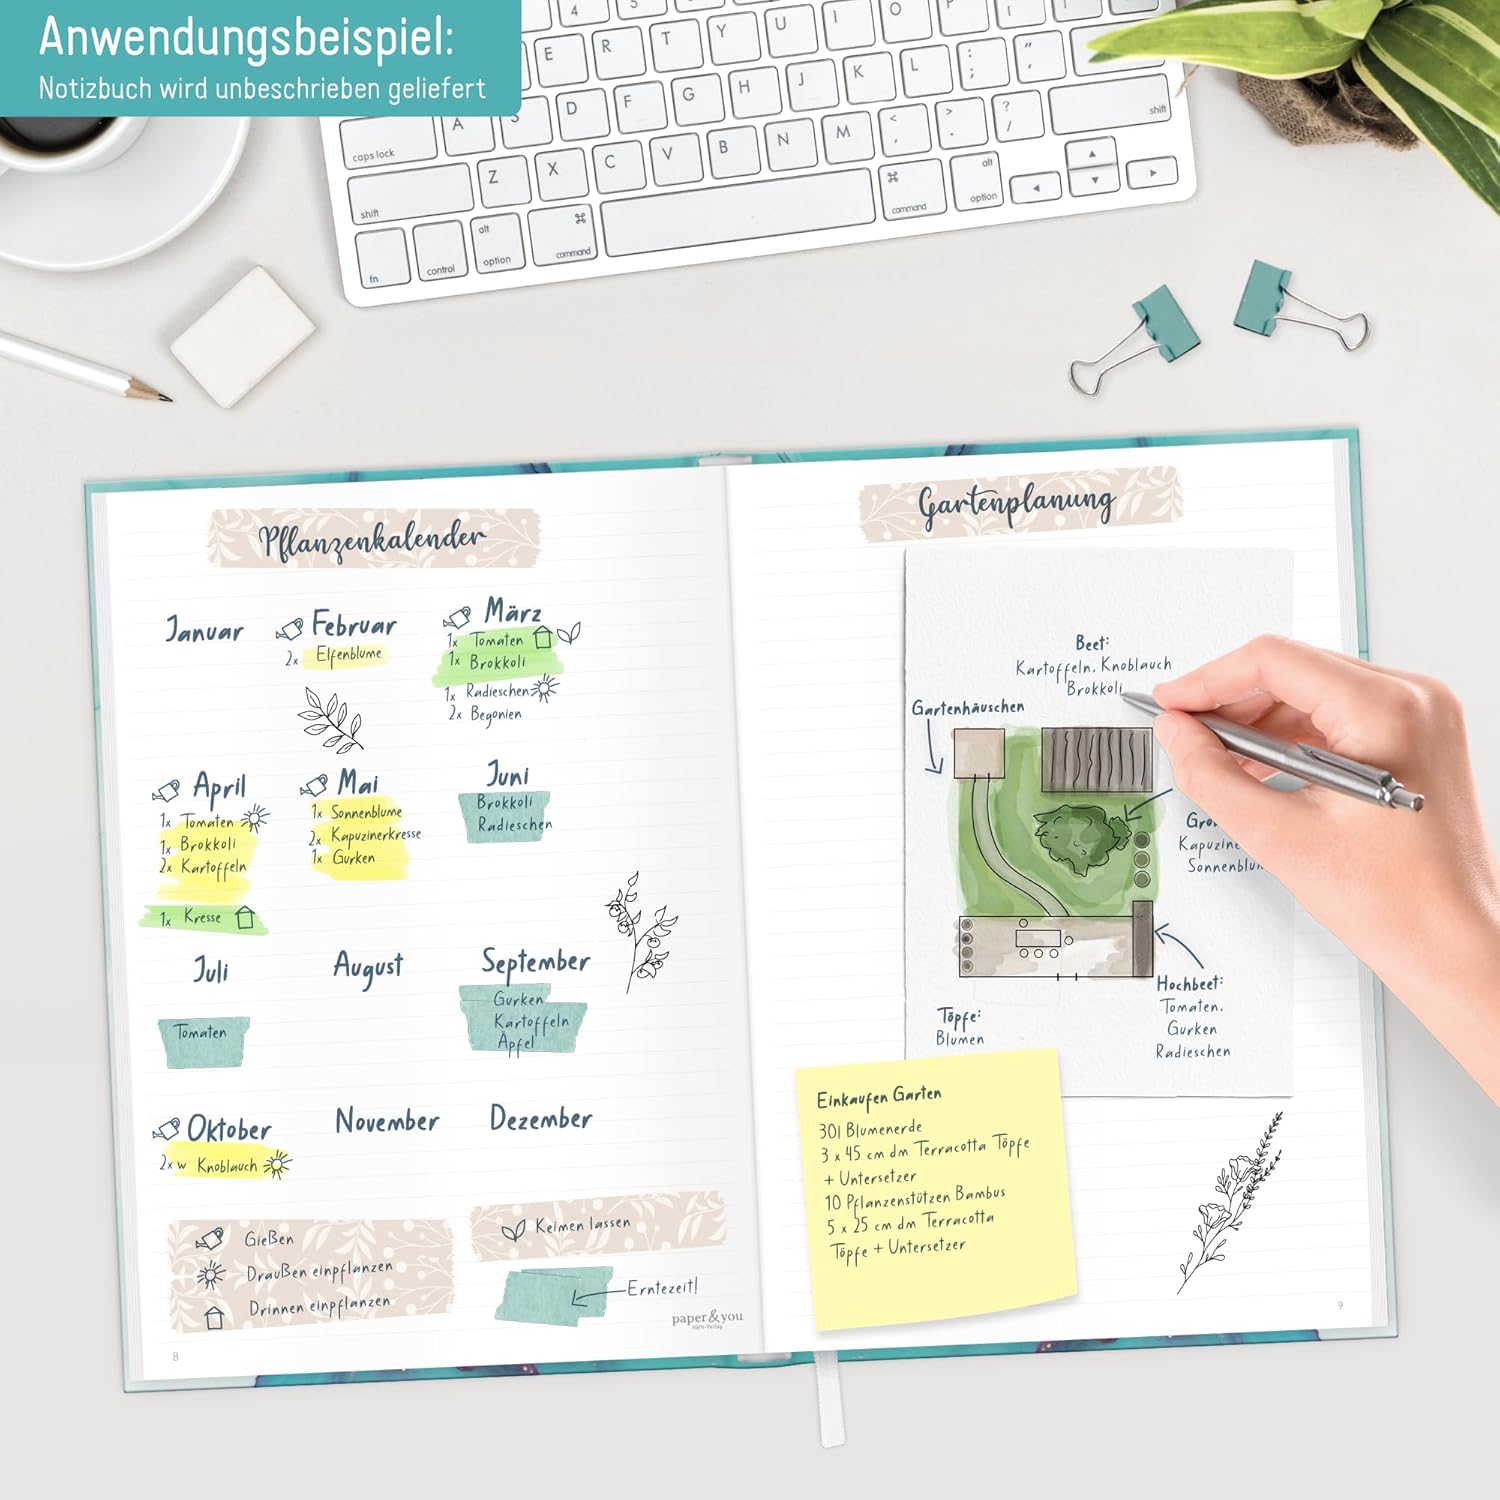 Anwendungsbeispiel:
Notizbuch wird unbeschrieben geliefert
4
5
E R T Y U I O P
A S D F G H J K L : ; " ,
caps lock
Z X C V B N M < , > . ? / shift
shift
fn control alt option ⌘ command ⌘ command alt option
Pflanzenkalender
Januar
Februar
2x Elfenblume
März
1x Tomaten
1x Brokkoli
1x Radieschen
2x Begonien
April
1x Tomaten
1x Brokkoli
2x Kartoffeln
1x Kresse
Mai
1x Sonnenblume
2x Kapuzinerkresse
1x Gurken
Juni
Brokkoli
Radieschen
Juli
Tomaten
August
September
Gurken
Kartoffeln
Äpfel
Oktober
2x w Knoblauch
November
Dezember
Gießen
Draußen einpflanzen
Drinnen einpflanzen
Keimen lassen
Erntezeit!
paper&you
Häfft-Verlag
8
Gartenplanung
Beet:
Kartoffeln, Knoblauch
Brokkoli
Gartenhäuschen
Hochbeet:
Tomaten,
Gurken
Radieschen
Töpfe:
Blumen
Einkaufen Garten
30l Blumenerde
3 x 45 cm dm Terracotta Töpfe
+ Untersetzer
10 Pflanzenstützen Bambus
5 x 25 cm dm Terracotta
Töpfe + Untersetzer
9